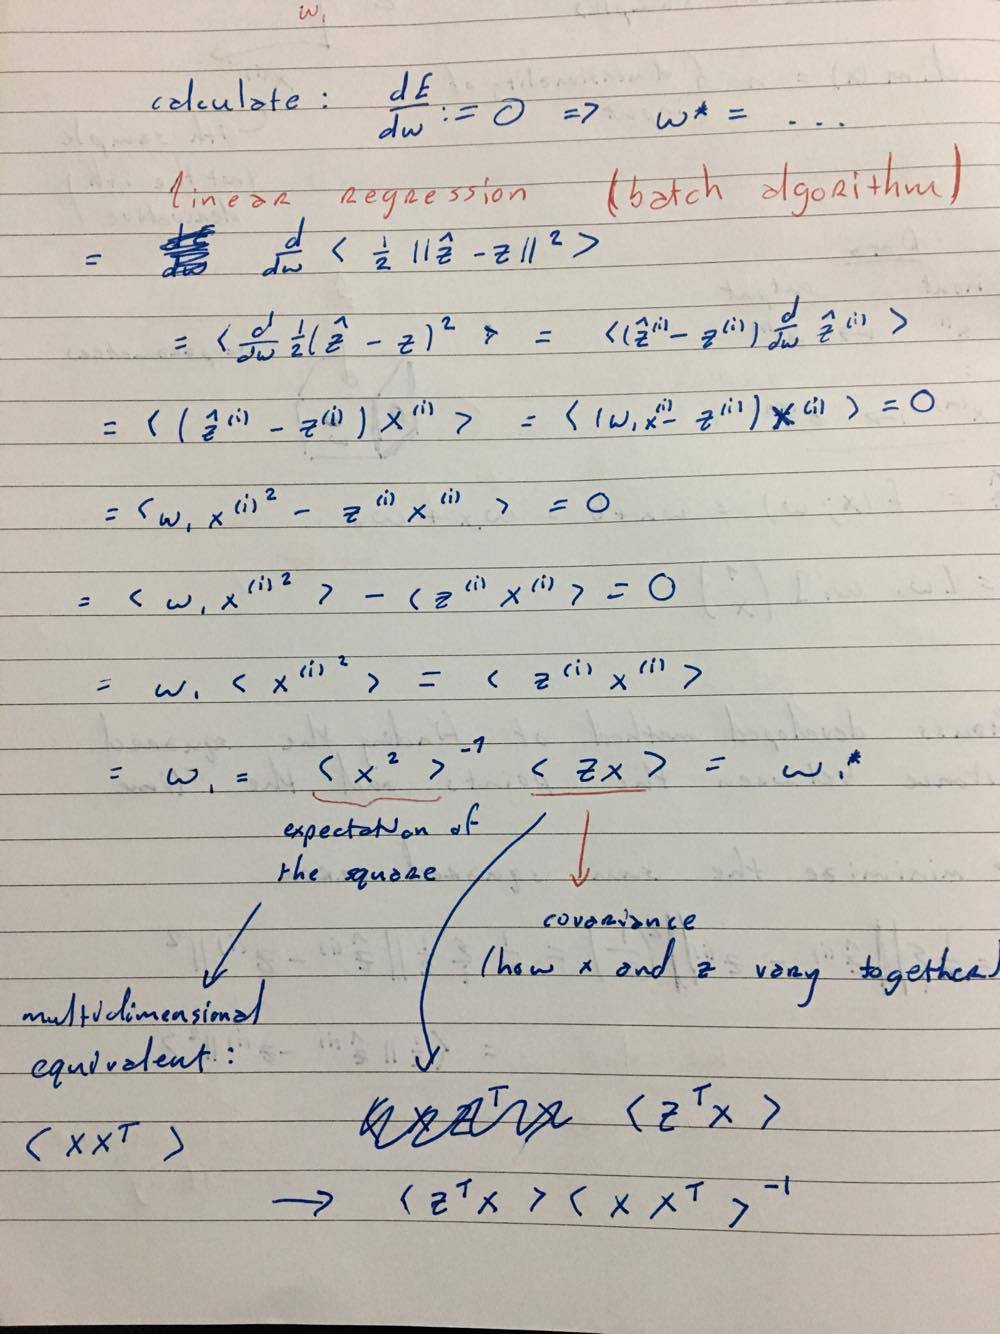 w₁
calculate: dE/dw := 0 => w* = ...
linear regression (batch algorithm)
= d/dw < ½ ||ẑ - z||² >
= < d/dw ½(ẑ - z)² > = <(ẑ⁽ⁱ⁾ - z⁽ⁱ⁾) d/dw ẑ⁽ⁱ⁾ >
= < (ẑ⁽ⁱ⁾ - z⁽ⁱ⁾) x⁽ⁱ⁾ > = < (w₁x⁽ⁱ⁾ - z⁽ⁱ⁾) x⁽ⁱ⁾ > = 0
= < w₁ x⁽ⁱ⁾² - z⁽ⁱ⁾ x⁽ⁱ⁾ > = 0
= < w₁ x⁽ⁱ⁾² > - < z⁽ⁱ⁾ x⁽ⁱ⁾ > = 0
= w₁ < x⁽ⁱ⁾² > = < z⁽ⁱ⁾ x⁽ⁱ⁾ >
= w₁ = < x² >⁻¹ < zx > = w₁*
expectation of
the square
covariance
(how x and z vary together)
multidimensional
equivalent:
< xxᵀ >
< zᵀx >
→ < zᵀx > < x xᵀ >⁻¹